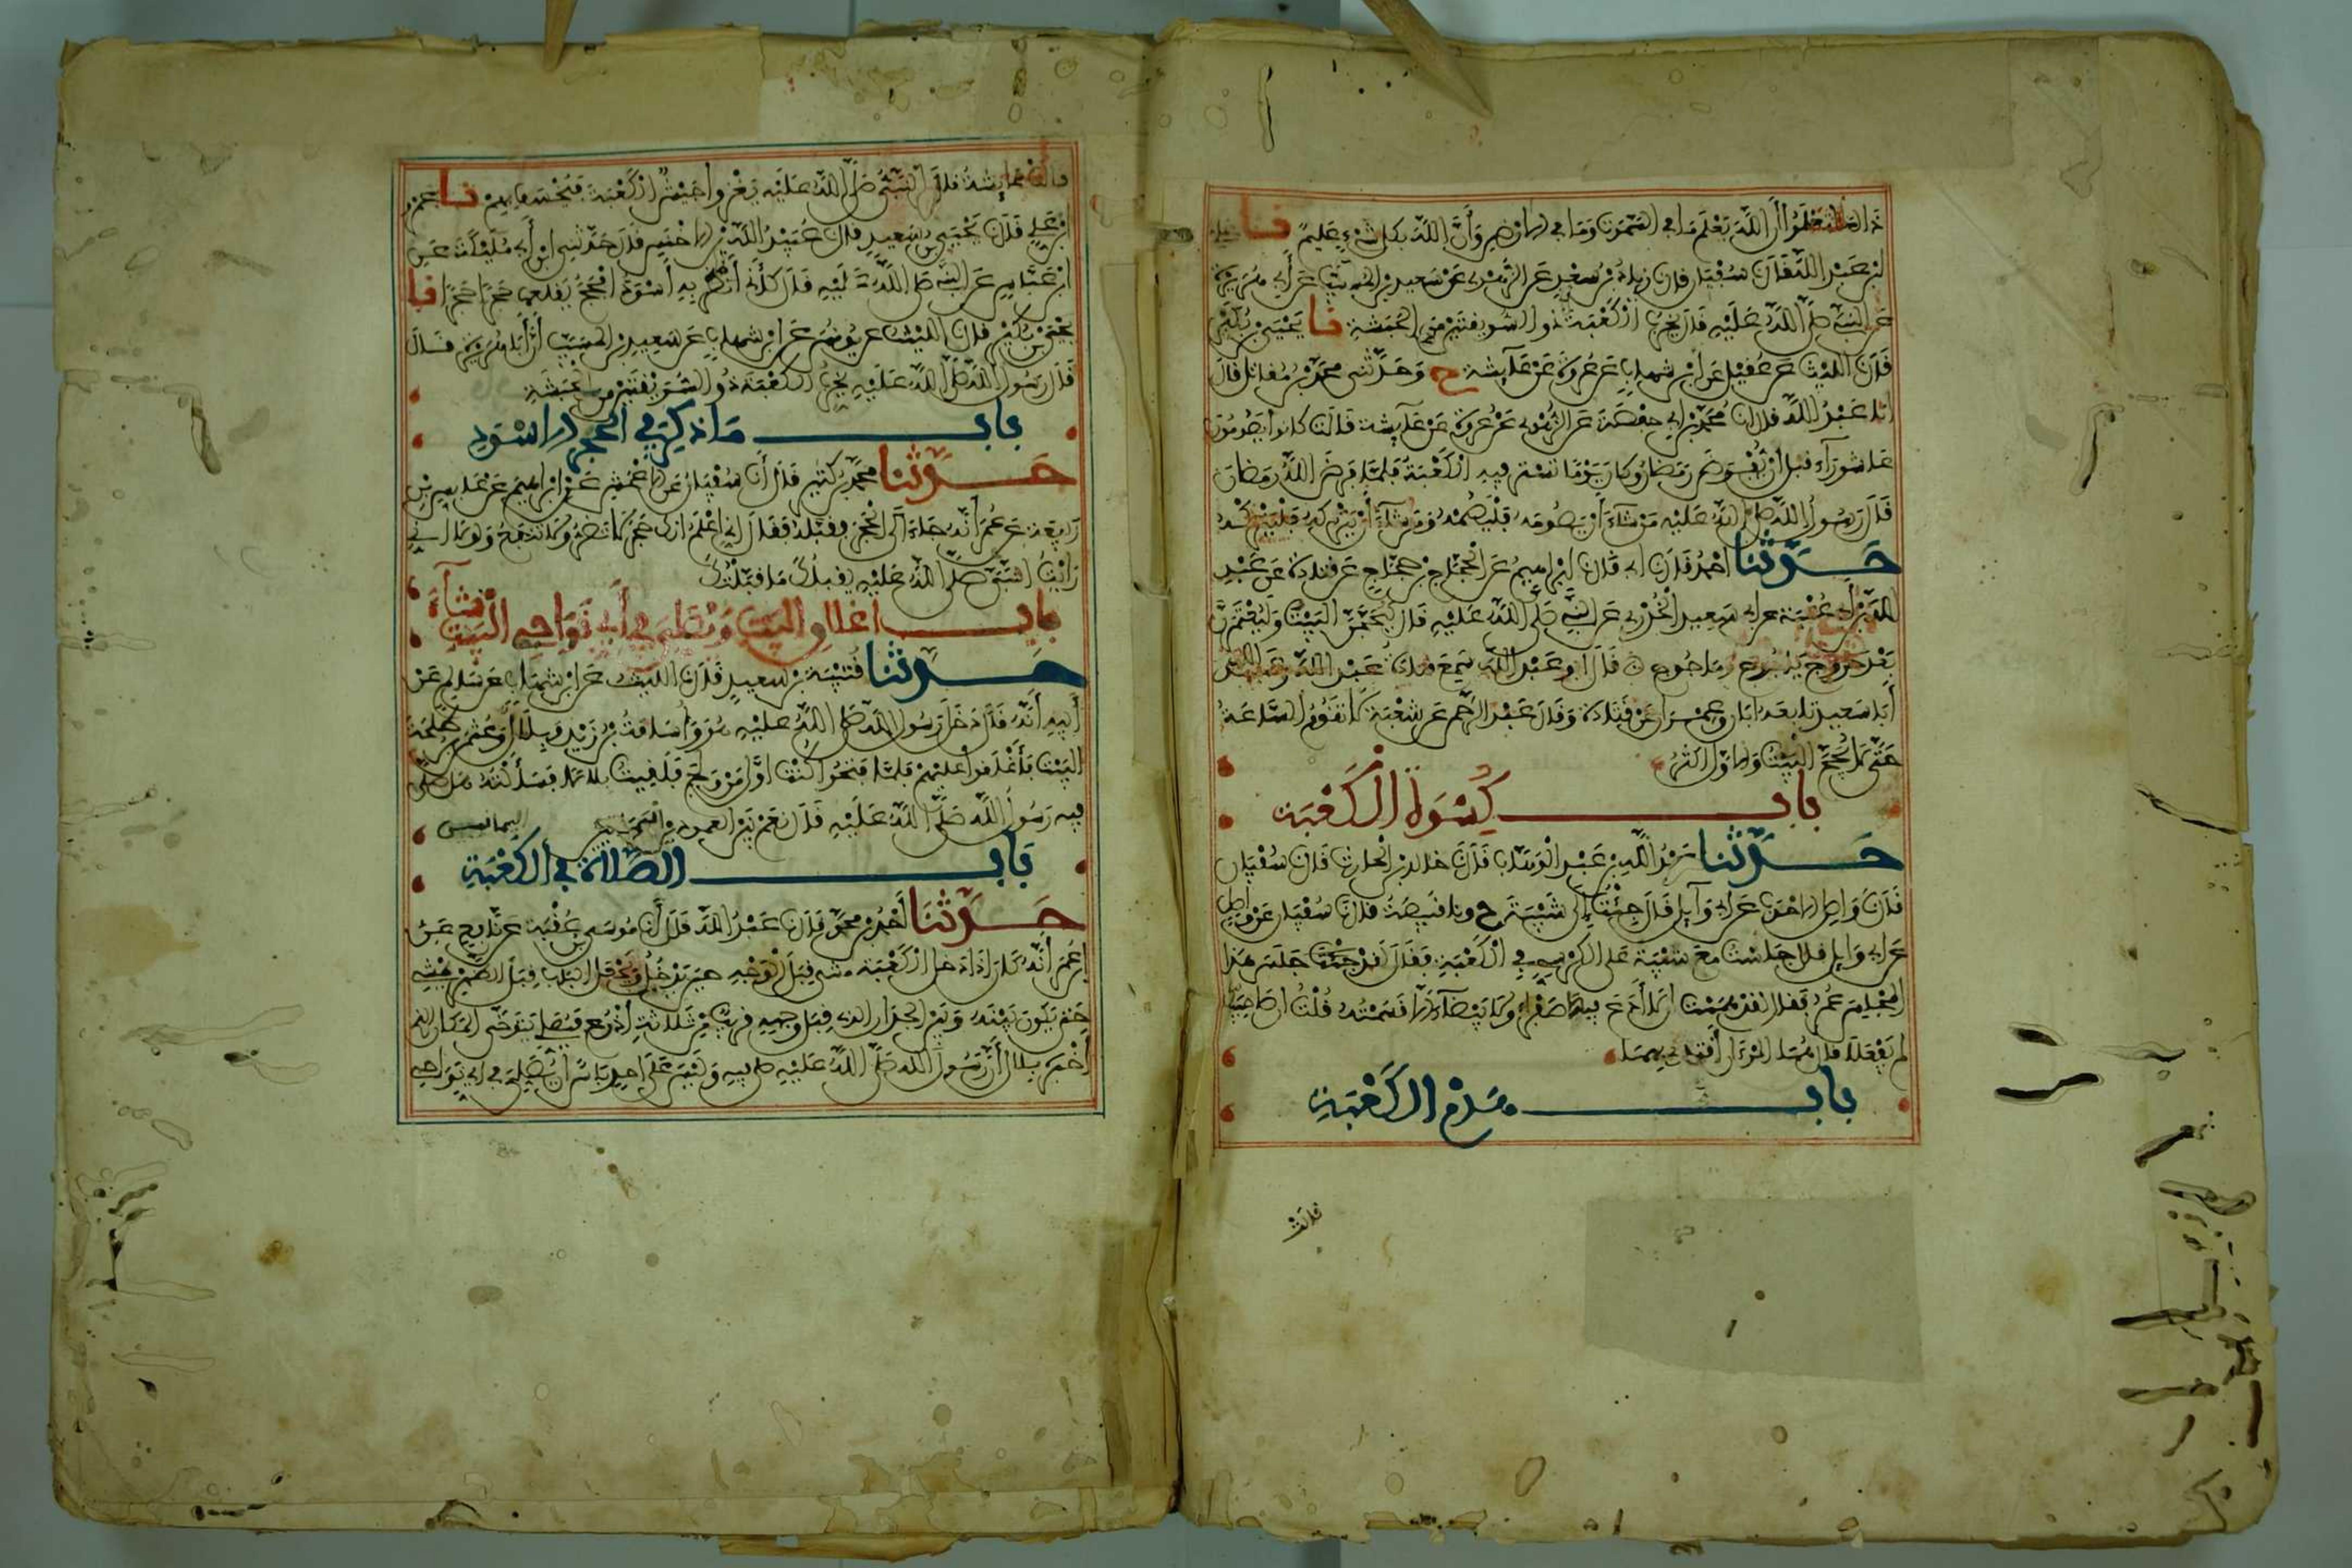 ذالك لتعلموا أن الله يعلم ما في السموت وما في الارض وأن الله بكل شيء عليم نا علي
ابن عبد الله قال نا سفين قال نا زياد بن سعد عن الزهري عن سعيد بن المسيب عن أبي هريرة
عن النبي صلى الله عليه قال يخرب الكعبة ذو السويقتين من الحبشة نا يحيى بن بكير
قال نا الليث عن عقيل عن ابن شهاب عن عروة عن عايشة ح وحدثني محمد بن مقاتل قال
انا عبد الله قال انا محمد بن ابي حفصة عن الزهري عن عروة عن عايشة قالت كانوا يصومون
عاشوراء قبل أن يفرض رمضان وكان يوما تستر فيه الكعبة فلما فرض الله رمضان
قال رسول الله صلى الله عليه من شاء أن يصومه فليصمه ومن شاء أن يتركه فليتركه
حدثنا احمد قال نا ابي قال نا إبراهيم عن الحجاج بن حجاج عن قتادة عن عبد
الله بن أبي عتبة عن ابي سعيد الخدري عن النبي صلى الله عليه قال ليحجن البيت وليعتمرن
بعد خروج ياجوج وماجوج قال ابو عبد الله سمع قتادة عبد الله وعبد الله
أبا سعيد تابعه ابان وعمران عن قتادة وقال عبد الرحمن عن شعبة لا تقوم الساعة
حتى لا يحج البيت والاول اكثر
باب كسوة الكعبة
حدثنا عبد الله بن عبد الوهاب قال نا خالد بن الحارث قال نا سفين
قال نا واصل الاحدب عن ابي وآيل قال جئت إلى شيبة ح ونا قبيصة قال نا سفين عن واصل
عن ابي وايل قال جلست مع شيبة على الكرسي في الكعبة فقال لقد جلس هذا
المجلس عمر فقال لقد هممت ان لا أدع فيها صفراء ولا بيضاء الا قسمته قلت ان صاحبيك
لم يفعلا قال هما المرءان أقتدي بهما
باب هدم الكعبة
قالت
قالت عايشة قال النبي صلى الله عليه يغزو جيش الكعبة فيخسف بهم نا عمرو
بن علي قال نا يحيى بن سعيد قال نا عبيد الله بن الاخنس قال حدثني ابن أبي مليكة عن
ابن عباس عن النبي صلى الله عليه قال كأني أنظر به أسود افحج يقلعها حجرا حجرا نا
يحيى بن بكير قال نا الليث عن يونس عن ابن شهاب عن سعيد بن المسيب أن أبا هريرة قال
قال رسول الله صلى الله عليه يخرب الكعبة ذو السويقتين من الحبشة
باب ما ذكر في الحجر الاسود
حدثنا محمد بن كثير قال أنا سفين عن الاعمش عن ابراهيم عن عابس بن
ربيعة عن عمر أنه جاء الى الحجر فقبله فقال إني اعلم انك حجر لا تضر ولا تنفع ولولا اني
رايت النبي صلى الله عليه يقبلك ما قبلتك
باب اغلاق البيت ويصلي في أي نواحي البيت شاء
حدثنا قتيبة بن سعيد قال نا الليث عن ابن شهاب عن سالم عن
أبيه أنه قال دخل رسول الله صلى الله عليه هو وأسامة بن زيد وبلال وعثمن بن طلحة
البيت فأغلقوا عليهم فلما فتحوا كنت اول من ولج فلقيت بلالا فسألته هل صلى
فيه رسول الله صلى الله عليه قال نعم بين العمودين اليمانيين
باب الصلاة في الكعبة
حدثنا أحمد بن محمد قال نا عبد الله قال أنا موسى بن عقبة عن نافع عن
ابن عمر أنه كان اذا دخل الكعبة مشى قبل الوجه حين يدخل ويجعل الباب قبل الظهر يمشي
حتى يكون بينه وبين الجدار الذي قبل وجهه قريبا من ثلاثة أذرع فيصلي يتوخى المكان الذي
أخبره بلال أن رسول الله صلى الله عليه صلى فيه وليس على احد باس أن يصلي في اي نواحي